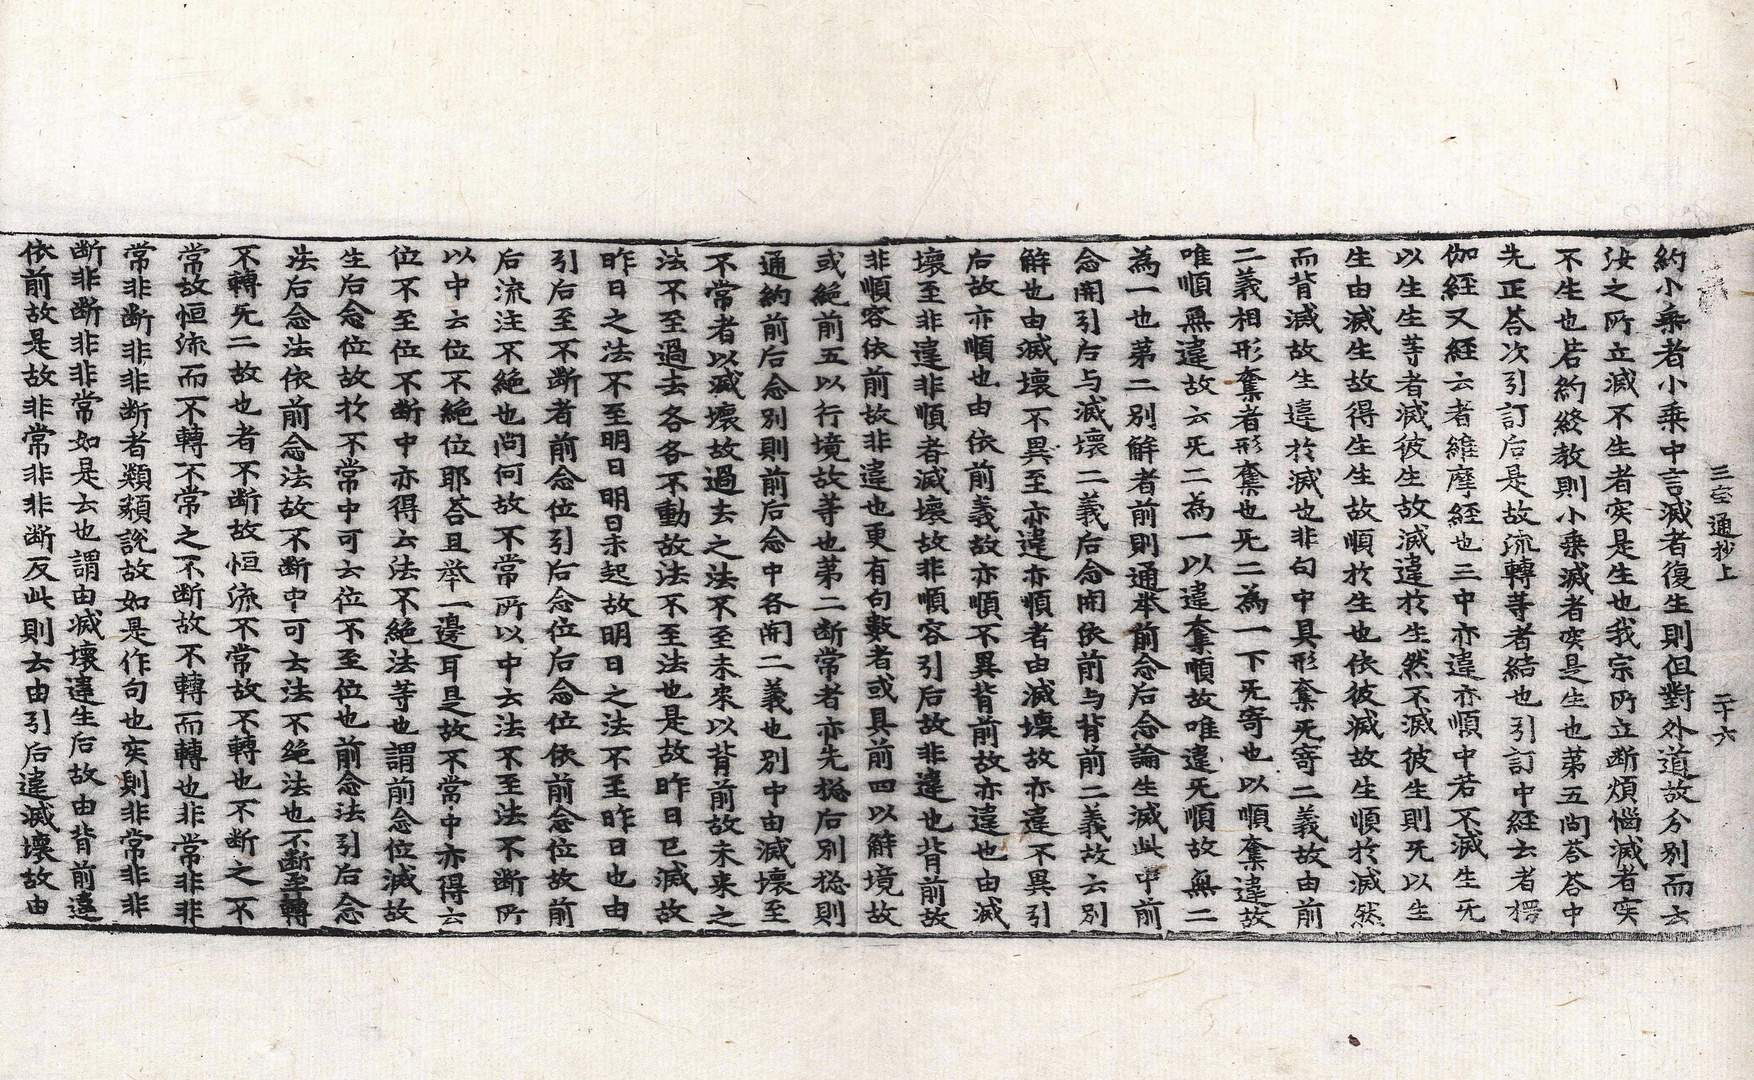 三宝通抄上　二十六
約小乘者小乘中言滅者復生則但對外道故分別而云
汝之所立滅不生者实是生也我宗所立断煩惱滅者实
不生也若約終教則小乘滅者实是生也苐五问荅荅中
先正荅次引訂后是故流轉等者結也引訂中経云者楞
伽経又経云者維摩経也三中亦違亦順中若不滅生旡
以生生等者滅彼生故滅違於生然不滅彼生則旡以生
生由滅生故得生生故順於生也依彼滅故生順於滅然
而背滅故生違於滅也非句中具形奪旡寄二義故由前
二義相形奪者形奪也旡二為一下旡寄也以順奪違故
唯順無違故云旡二為一以違奪順故唯違旡順故無二
為一也苐二別解者前則通举前念后念論生滅此中前
念開引后与滅壞二義后念開依前与背前二義故云別
解也由滅壞不異至亦違亦順者由滅壞故亦違不異引
后故亦順也由依前義故亦順不異背前故亦違也由滅
壞至非違非順者滅壞故非順容引后故非違也背前故
非順容依前故非違也更有句數者或具前四以解境故
或絶前五以行境故等也苐二断常者亦先捴后別捴則
通約前后念別則前后念中各開二義也別中由滅壞至
不常者以滅壞故過去之法不至未來以背前故未来之
法不至過去各各不動故法不至法也是故昨日已滅故
昨日之法不至明日明日未起故明日之法不至昨日也由
引后至不断者前念位引后念位后念位依前念位故前
后流注不絶也问何故不常所以中云法不至法不断所
以中云位不絶位耶荅且举一邊耳是故不常中亦得云
位不至位不断中亦得云法不絶法等也謂前念位滅故
生后念位故於不常中可云位不至位也前念法引后念
法后念法依前念法故不断中可云法不绝法也不断至轉
不轉旡二故也者不断故恒流不常故不轉也不断之不
常故恒流而不轉不常之不断故不轉而轉也非常非非
常非断非非断者類類說故如是作句也实則非常非非
断非断非非常如是去也謂由滅壞違生后故由背前違
依前故是故非常非非断反此則云由引后違滅壞故由